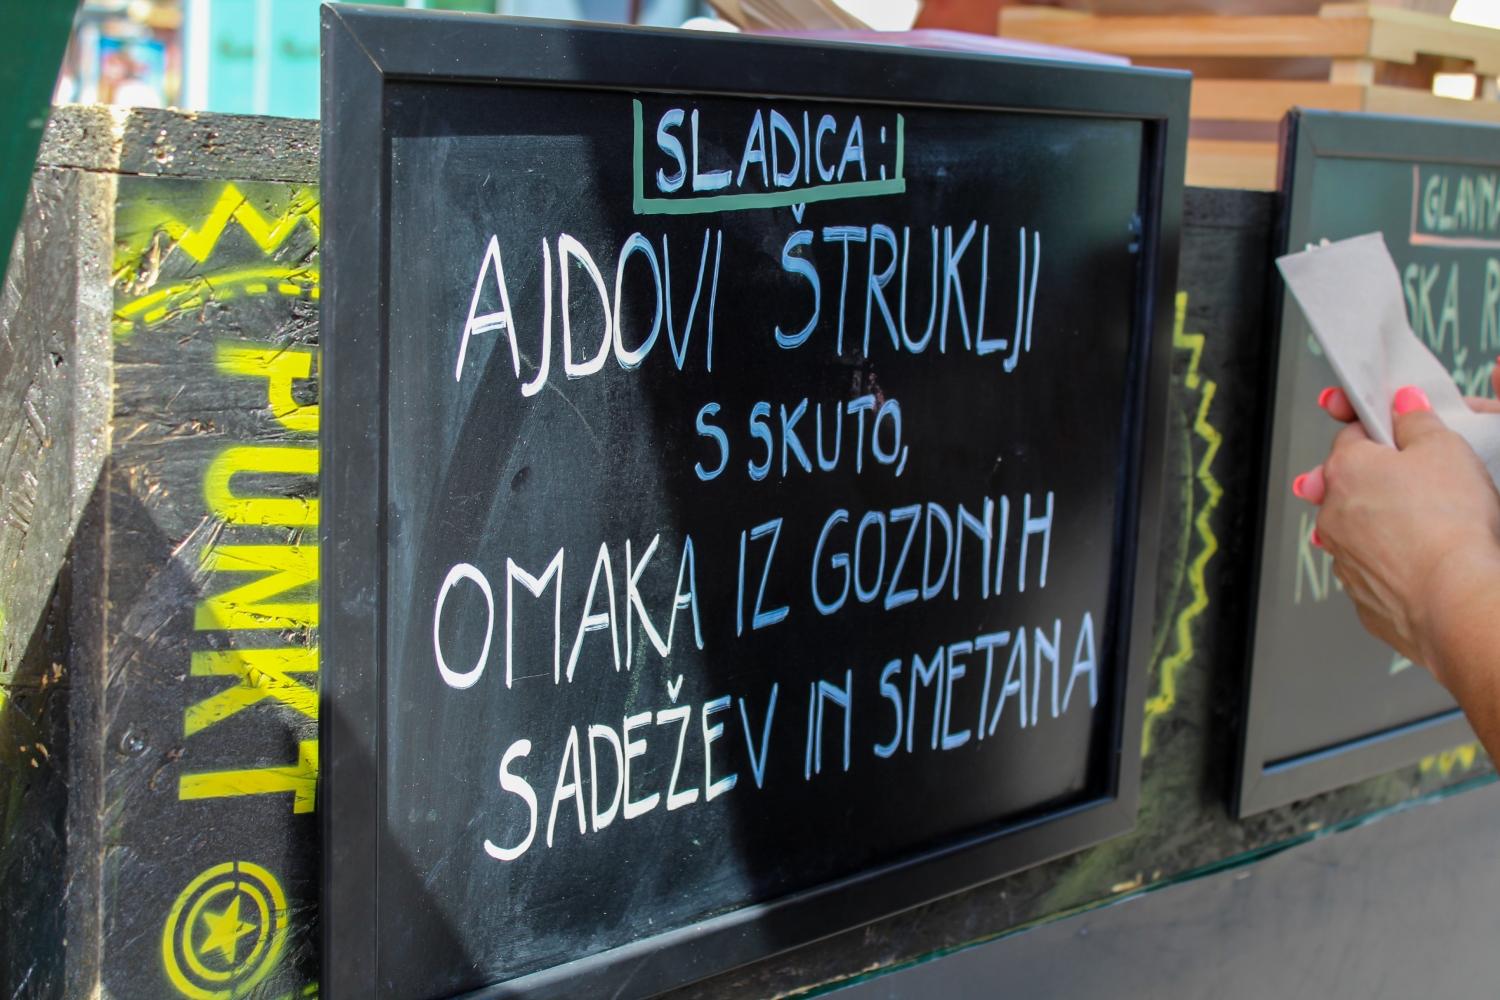 SLADICA:
AJDOVI ŠTRUKLJI
S SKUTO,
OMAKA IZ GOZDNIH
SADEŽEV IN SMETANA
PUNKT